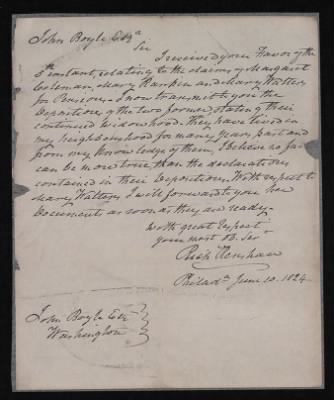 John Boyle Esqr
Sir
I received your Favor of the
5th instant, relating to the claims of Margaret
Coleman, Mary Rankin and Mary Watters
for Pensions. I now transmit to you the
Depositions of the two former, stating their
continued Widowhood. They have lived in
my neighbourhood for many years past and
from my knowledge of them, I believe no fact
can be more true, than the declarations
contained in their Depositions. With respect to
Mary Watters, I will forward to you her
Documents as soon as they are ready.
With great respect
your most Ob. Ser
Rich Renshaw
Philada June 10. 1824
John Boyle Esqr
Washington